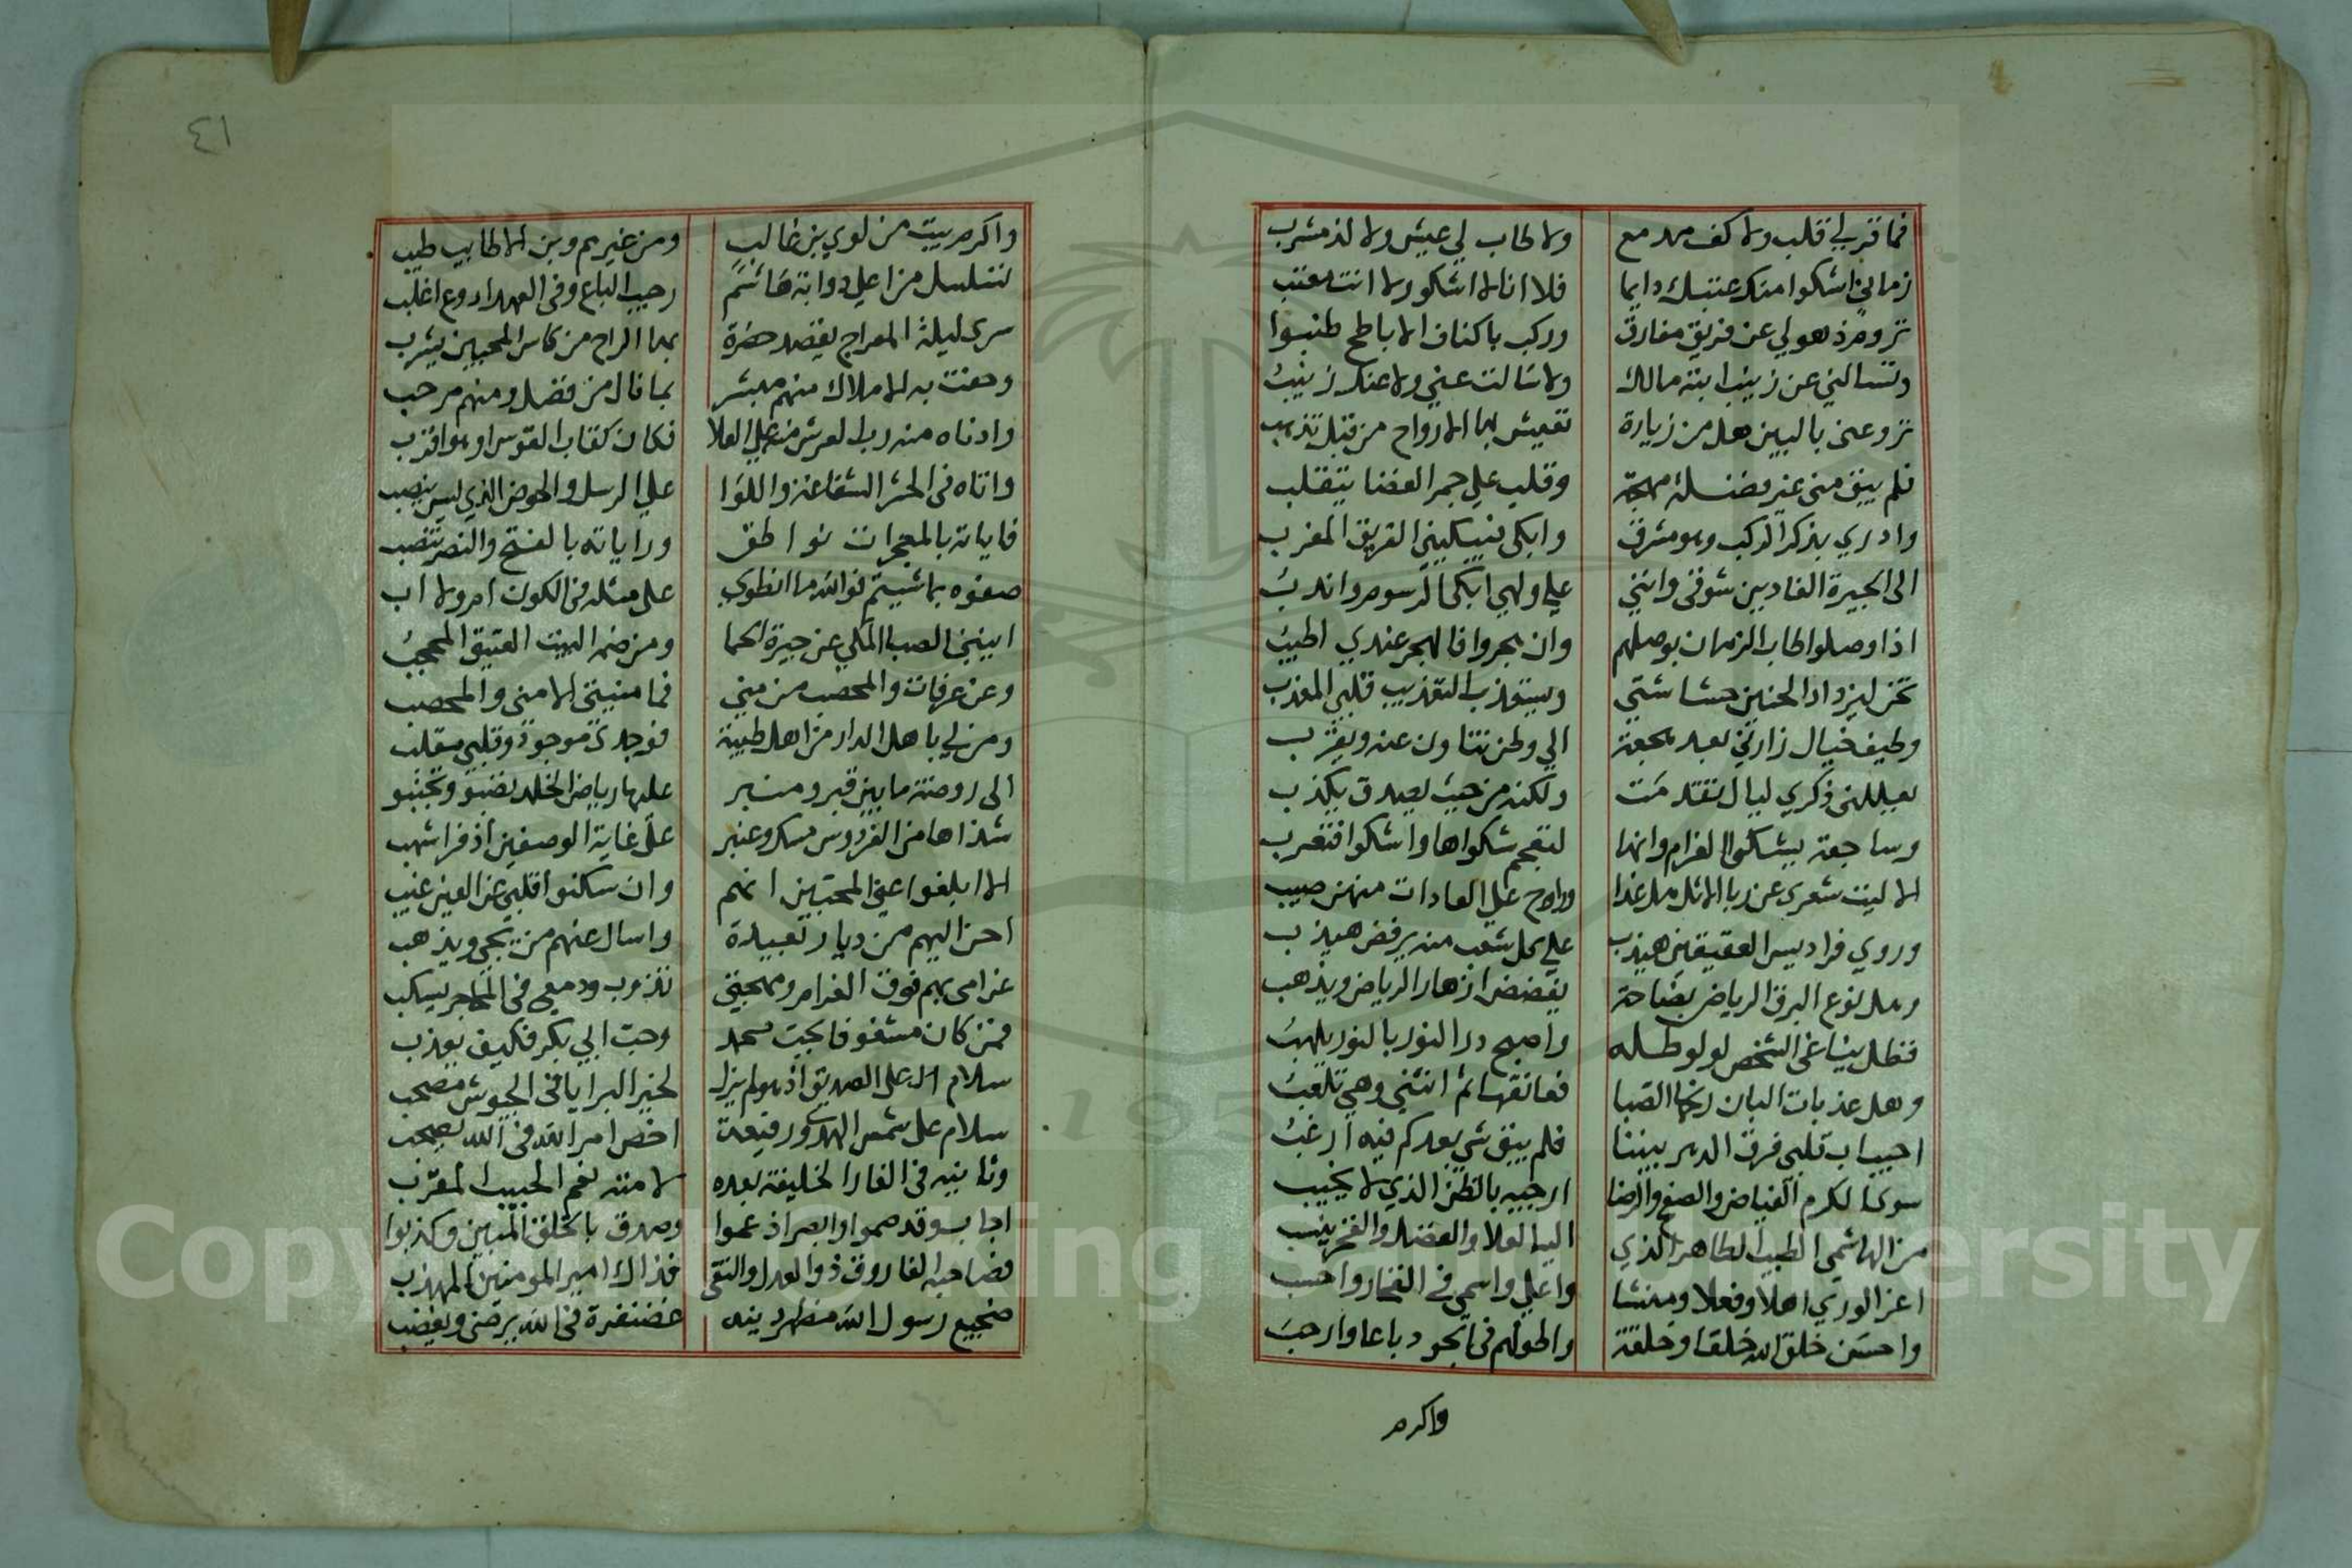 فما قر لي قلب ولا كف مدمع ولا طاب لي عيش ولا لذ مشرب
زماني اشكوا منك عتبك دايما فلا انا لا اشكو ولا انت معتب
تروم ذهولي عن فريق مفارق وركب باكناف الاباطح طنبوا
وتسالني عن زينب ابنة مالك ولا سالت عني ولا عنك زينب
تروعني بالبين هل من زيارة تعيش بها الارواح من قبل تذهب
فلم يبق مني غير فضلة مهجة وقلب علي جمر الغضا يتقلب
وادري بذكر الركب وهو مشرق وابكي فيبكيني الفريق المغرب
الى الجيرة الغاديين شوقي وانني علي ولهي ابكي الرسوم واندب
اذا وصلوا طاب الزمان بوصلهم وان هجروا فالهجر عندي اطيب
تحن ليزداد الحنين حشاشتي ويستعذب التعذيب قلبي المعذب
وطيف خيال زارني بعد هجعة الي وطن نتناون عنه ويقرب
يعللني ذكري ليال تقدمت ولكنه من حيث يصدق يكذب
وساجعة يشكوا الغرام وانها لتعجم شكواها واشكوا فتعرب
الا ليت شعري عن ربا الاثل هل غدا وراوح علي العادات منهن صيب
وروي فراديس العقيقين هيذب علي كل شعب منه يرفض هيذب
وهل نوع البرق الرياض بضاحة يفضض ازهار الرياض ويذهب
فظل يناغي الشخص لولو طله واصبح درا النور بالنور يلهب
وهل عذبات البان رنحها الصبا فعانقها ثم انثني وهي تلعب
احباب قلبي فرق الدهر بيننا فلم يبق شي بعدكم فيه ارغب
سوي الكرم الفياض والصفح والرضا ارجيه بالظن الذي لا يخيب
من الهاشمي الطيب الطاهر الذي اليه العلا والفضل والفخر ينسب
اعز الوري اهلا وفعلا ومنشا واعلي واسمي في الفخار واحسب
واحسن خلق الله خلقا وخلقة واطولهم في الجود باعا وارحب
واكرم
٤١
واكرم بيت من لوي بن غالب ومن غيرهم وبن الاطاييب طيب
تسلسل من اعلي ذوابة هاشم رحيب الباع وفي العهد اروع اغلب
سري ليلة المعراج يقصد حضرة بها الراح من كاس المحبين يشرب
وحفت به الاملاك منهم مبشر بما نال من فضل ومنهم مرحب
وادناه منه رب العرش منه علي العلا فكان كقاب القوس او هو اقرب
واتاه في الحشر الشفاعة واللوا علي الرسل والحوض الذي ليس ينضب
فاياته بالمعجزات نواطق وراياته بالفتح والنصر تنصب
صفوه بما شيتم فوالله ما انطوي على مثله في الكون ام ولا اب
ابيني الصبا المكي عن جيرة الحما ومن ضمه البيت العتيق المحجب
وعن عرفات والمحصب من مني فما منيتي الا مني والمحصب
ومن لي باهل الدار من اهل طيبة فوجدي موجود وقلبي مقلب
الى روضة ما بين قبر ومنبر عليها رياض الخلد تصبو وتجنبو
شذاها من الفردوس مسك وعنبر على غاية الوصفين اذفر اشهب
الا ابلغوا عني المحبين انهم وان سكنوا قلبي عن العين غيب
احن اليهم من ديار بعيدة واسال عنهم من يجي ويذهب
غرامي بهم فوق الغرام ومهجتي تذوب ودمعي في المحاجر يسكب
فمن كان مشغوفا بحب محمد وحب ابي بكر فكيف يعذب
سلام الله علي الصديق اذ هو لم يزل لخير البرايا في الجيوش مصحب
سلام على شمس الهدي ورفيعة اخص امر الله في الله يصحب
وثانيه في الغار الخليفة بعده لامته نعم الحبيب المقرب
اجاب وقد صموا وابصر اذ عموا وصدق بالخلق المبين وكذبوا
فصاحبه الفاروق ذو العدل والتقى فذاك امير المومنين المهذب
ضجيع رسول الله مظهر دينه غضنفرة في الله يرضي ويغضب
Copyright © King Saud University
195